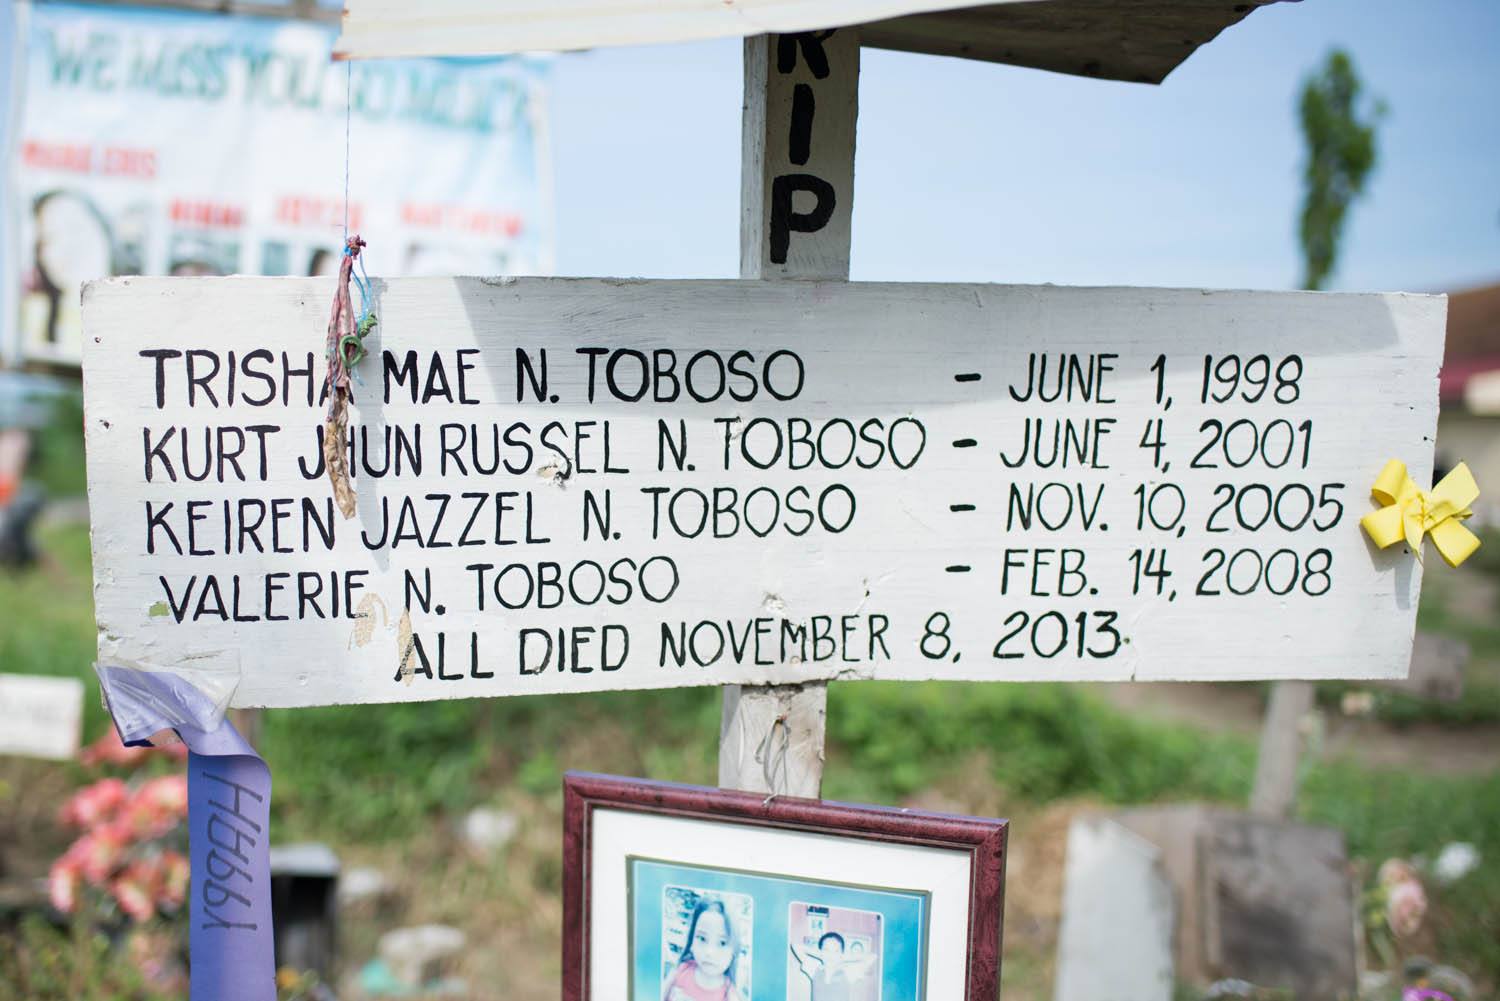 WE MISS YOU SO MUCH
RIP
TRISHA MAE N. TOBOSO - JUNE 1, 1998
KURT JHUN RUSSEL N. TOBOSO - JUNE 4, 2001
KEIREN JAZZEL N. TOBOSO - NOV. 10, 2005
VALERIE N. TOBOSO - FEB. 14, 2008
ALL DIED NOVEMBER 8, 2013.
HAPPY